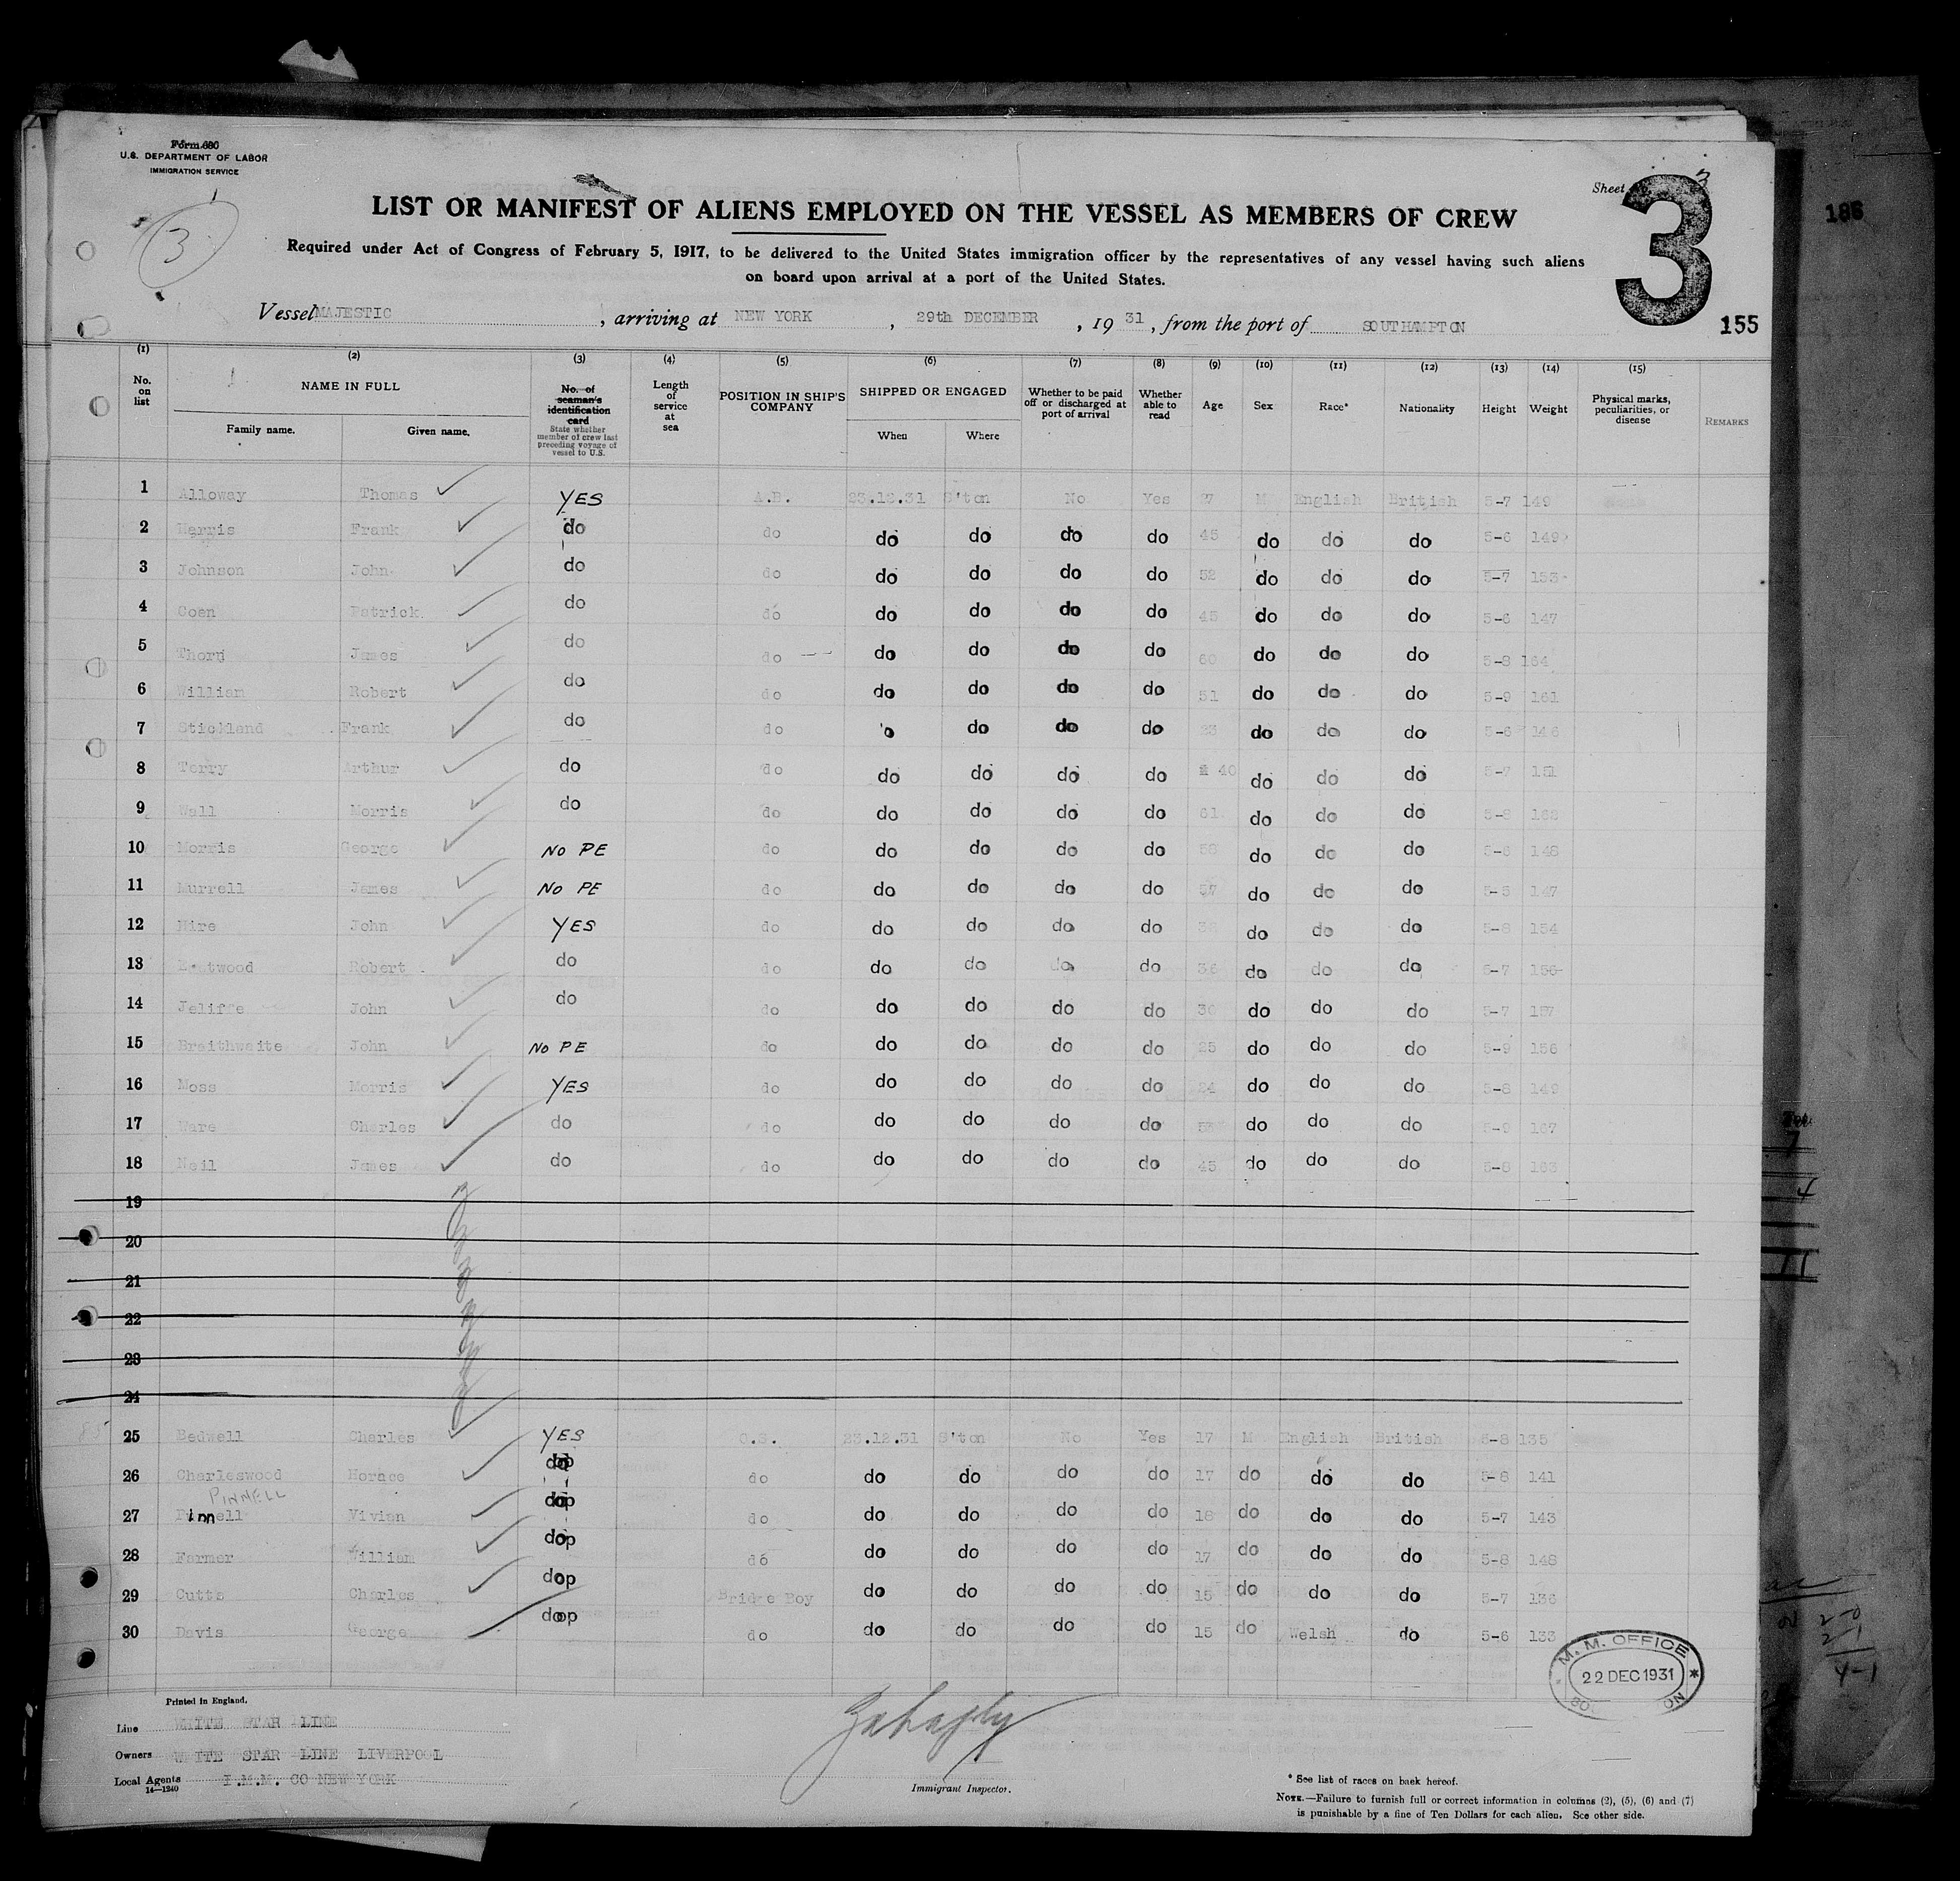 Form 680
U.S. DEPARTMENT OF LABOR
IMMIGRATION SERVICE
3
Sheet
3
186
LIST OR MANIFEST OF ALIENS EMPLOYED ON THE VESSEL AS MEMBERS OF CREW
Required under Act of Congress of February 5, 1917, to be delivered to the United States immigration officer by the representatives of any vessel having such aliens
on board upon arrival at a port of the United States.
Vessel MAJESTIC, arriving at NEW YORK, 29th DECEMBER, 1931, from the port of SOUTHAMPTON
155
(1) (2) (3) (4) (5) (6) (7) (8) (9) (10) (11) (12) (13) (14) (15)
No. on list NAME IN FULL Family name. Given name. No. of seaman's identification card State whether member of crew last preceding voyage of vessel to U.S. Length of service at sea POSITION IN SHIP'S COMPANY SHIPPED OR ENGAGED When Where Whether to be paid off or discharged at port of arrival Whether able to read Age Sex Race* Nationality Height Weight Physical marks, peculiarities, or disease REMARKS
1 Alloway Thomas YES A.B. 23.12.31 S'ton No Yes M English British 5-7 149
2 Harris Frank do do do do do do 45 do do do 5-6 149
3 Johnson John do do do do do do 52 do do do 5-7 153
4 Coen Patrick do do do do do do 45 do do do 5-6 147
5 Thorn James do do do do do do 60 do do do 5-8 164
6 William Robert do do do do do do 51 do do do 5-9 161
7 Stickland Frank do do do do do 23 do do do 5-6 146
8 Terry Arthur do do do do do do 40 do do do 5-7 151
9 Wall Morris do do do do do do do do do 5-8
10 Morris George NO PE do do do do do 58 do do do 5-6 148
11 Murrell James NO PE do do do do do 57 do do do 5-5 147
12 Hire John YES do do do do do do do do 5-8 154
13 Robert do do do do do do 36 do do do 5-7 156
14 Jeliffe John do do do do do do 30 do do do 5-7 157
15 Braithwaite John NO PE do do do do do 25 do do do 5-9 156
16 Moss Morris YES do do do do do 24 do do do 5-8 149
17 Ware Charles do do do do do do do do do 5-9 167
18 Neil James do do do do do do 45 do do do 5-8 163
19
20
21
22
23
24
25 Bedwell Charles YES O.S. 23.12.31 S'ton No Yes 17 M English British 5-8 135
26 Charleswood Horace do do do do do do 17 do do do 5-8 141
PINNELL
27 Pinnell Vivian do do do do do do 18 do do do 5-7 143
28 Farmer William do do do do do do 17 do do do 5-8 148
29 Cutts Charles do Bridge Boy do do do do 15 do do do 5-7 136
30 Davis George do do do do do do 15 do Welsh do 5-6 133
M. M. OFFICE
22 DEC 1931
Printed in England.
Line WHITE STAR LINE
Owners WHITE STAR LINE LIVERPOOL
Local Agents I.M.M. CO NEW YORK
14—1240
Immigrant Inspector.
* See list of races on back hereof.
NOTE.—Failure to furnish full or correct information in columns (2), (5), (6) and (7)
is punishable by a fine of Ten Dollars for each alien. See other side.